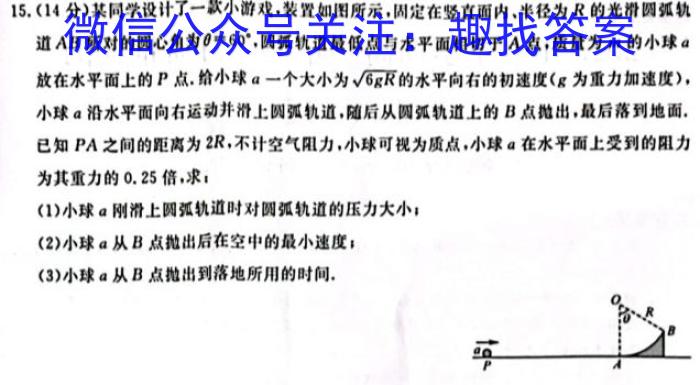 15.(14分)某同学设计了一款小游戏,装置如图所示,固定在竖直面内、半径为R的光滑圆弧轨
道AB所对的圆心角为θ=60°,圆弧轨道最低点与水平面相切于A点,质量为 的小球a
微信公众号关注:趣找答案
放在水平面上的P点.给小球a一个大小为√6gR的水平向右的初速度(g为重力加速度),
小球a沿水平面向右运动并滑上圆弧轨道,随后从圆弧轨道上的B点抛出,最后落到地面.
已知PA之间的距离为2R,不计空气阻力,小球可视为质点,小球a在水平面上受到的阻力
为其重力的0.25倍,求:
(1)小球a刚滑上圆弧轨道时对圆弧轨道的压力大小;
(2)小球a从B点抛出后在空中的最小速度;
(3)小球a从B点抛出到落地所用的时间.
O
θ
R
B
a
P
A